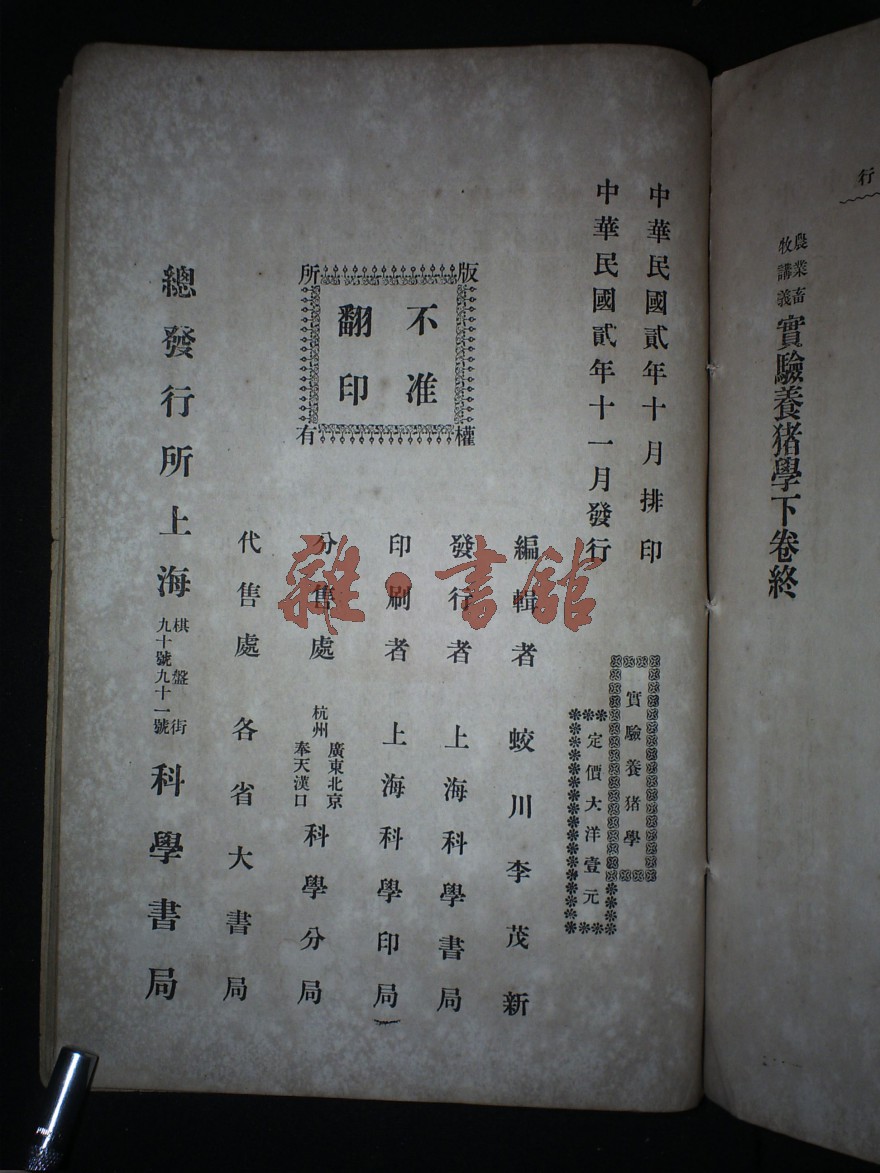 行
農業畜
牧講義
實驗養猪學下卷終
中華民國貳年十月排印
中華民國貳年十一月發行
實驗養猪學
定價大洋壹元
版權所有
不准
翻印
編輯者 蛟川李茂新
發行者 上海科學書局
印刷者 上海科學印局
分售處 杭州 廣東北京 奉天漢口 科學分局
代售處 各省大書局
總發行所上海 棋盤街 九十號九十一號 科學書局
雜·書館